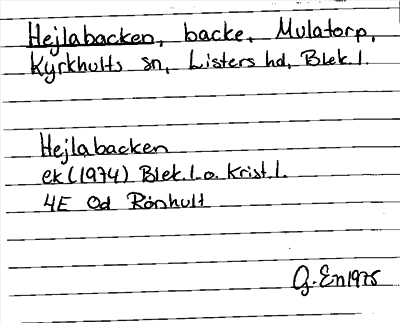 Hejlabacken, backe, Mulatorp,
Kyrkhults sn, Listers hd, Blek.l.
Hejlabacken
ek (1974) Blek.l. o. Krist.l.
4E Od Rönhult
G. En 1975